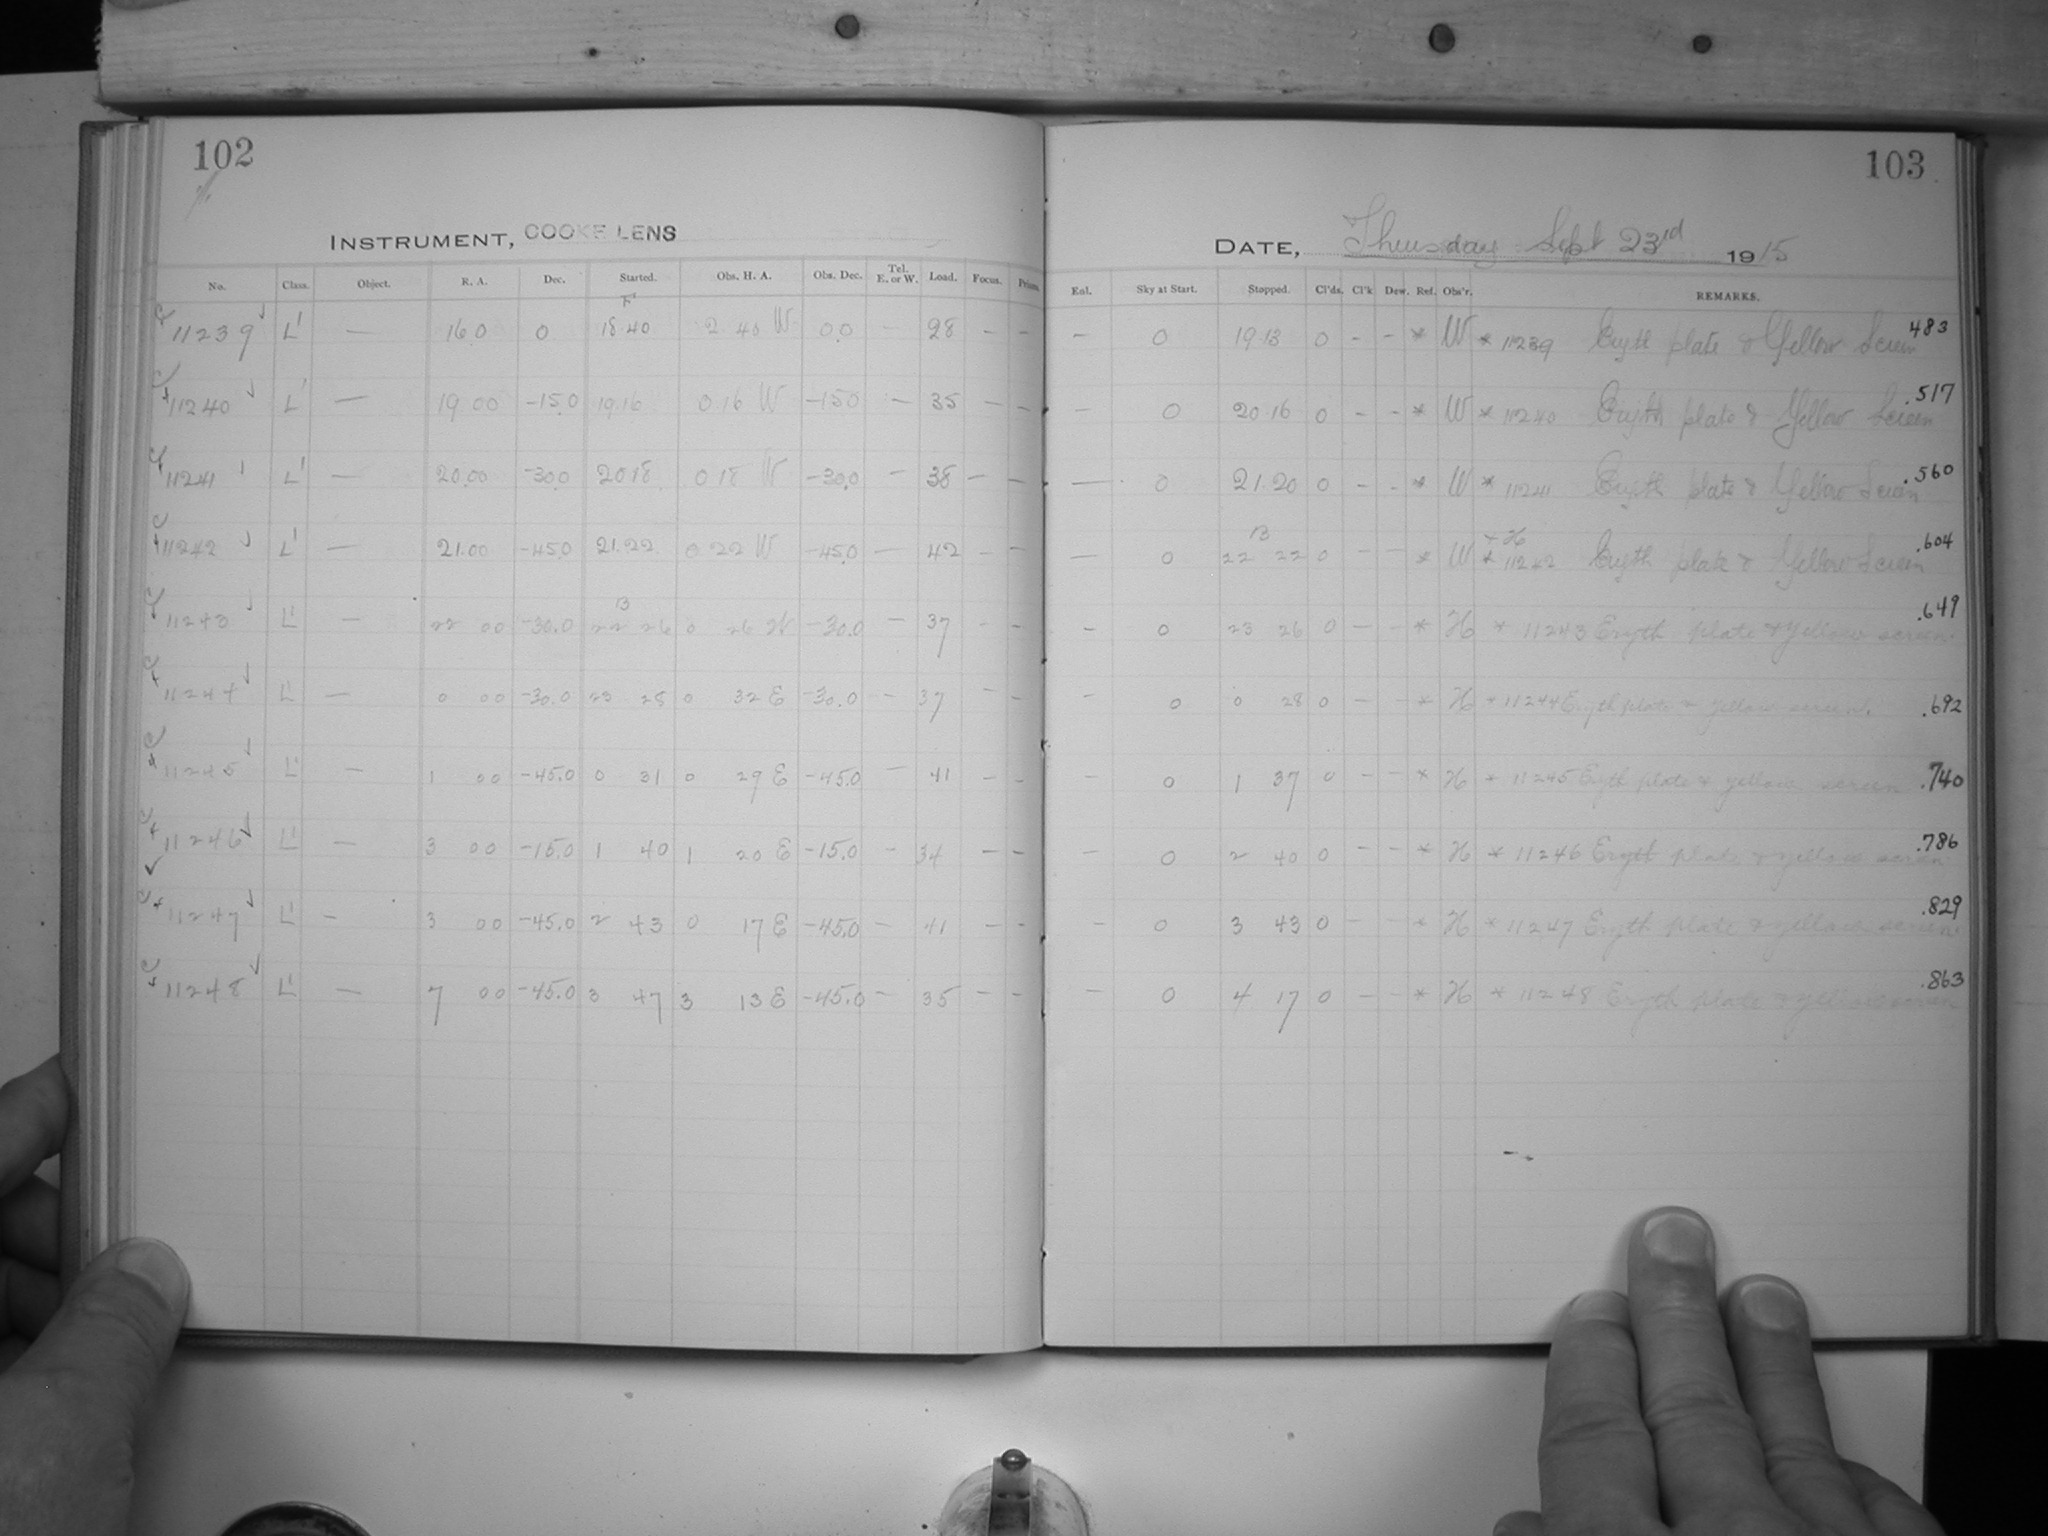 102
INSTRUMENT, COOKE LENS
No. Class. Object. R. A. Dec. Started. Obs. H. A. Obs. Dec. Tel. E. or W. Load. Focus. Prism.
F
11239 L' — 16 0 0 18 40 2 40 W 0.0 — 28 – –
11240 L' — 19 00 -15.0 19 16 0 16 W -15.0 — 35 – –
11241 L' — 20.00 -30.0 20 18 0 18 W -30.0 — 38 – –
11242 L' — 21.00 -45.0 21.22 0 22 W -45.0 — 42 – –
B
11243 L' — 22 00 -30.0 22 26 0 26 W -30.0 — 37 – –
11244 L' — 0 00 -30.0 23 28 0 32 E -30.0 — 37 – –
11245 L' — 1 00 -45.0 0 31 0 29 E -45.0 — 41 – –
11246 L' — 3 00 -15.0 1 40 1 20 E -15.0 – 34 – –
11247 L' – 3 00 -45.0 2 43 0 17 E -45.0 — 41 – –
11248 L' — 7 00 -45.0 3 47 3 13 E -45.0 – 35 – –
103
DATE, Thursday Sept 23rd 1915
Eol. Sky at Start. Stopped. Cl'ds. Cl'k Dew. Ref. Obs'r. REMARKS.
– 0 19 13 0 – – * W * 11239 Eryth plate & Yellow Screen 483
– 0 20 16 0 – – * W * 11240 Eryth plate & Yellow Screen .517
— 0 21.20 0 – – * W * 11241 Eryth plate & Yellow Screen .560
B + H
— 0 22 22 0 – – * W * 11242 Eryth plate & Yellow Screen .604
– 0 23 26 0 – – * H * 11243 Eryth plate & yellow screen. .649
– 0 0 28 0 – – * H * 11244 Eryth plate & yellow screen. .692
– 0 1 37 0 – – * H * 11245 Eryth plate & yellow screen .740
– 0 2 40 0 – – * H * 11246 Eryth plate & yellow screen .786
– 0 3 43 0 – – * H * 11247 Eryth plate & yellow screen .829
– 0 4 17 0 – – * H * 11248 Eryth plate & yellow screen .863